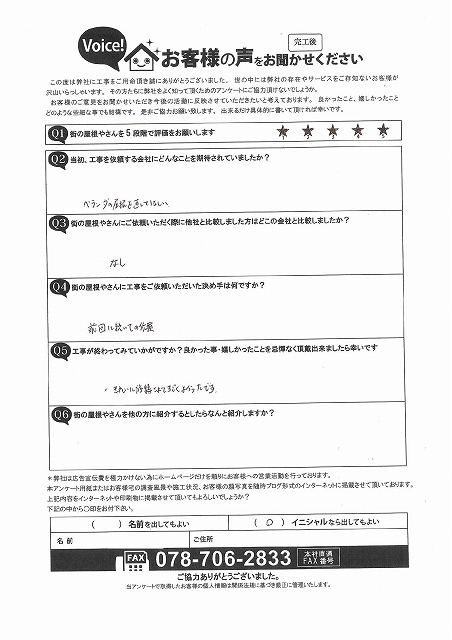 Voice!
完工後
お客様の声をお聞かせください
この度は弊社に工事をご用命頂き誠にありがとうございました。世の中には弊社の存在やサービスをご存知ないお客様が
沢山いらっしゃいます。その方たちに弊社をよく知って頂くためのアンケートにご協力頂けないでしょうか。
お客様のご意見をお聞かせいただき今後の活動に反映させていただきたいと考えております。良かったこと、嬉しかったこと
どのような些細な事でも結構です。是非ご協力お願い致します。出来るだけ具体的に書いて頂ければ幸いです。
Q1 街の屋根やさんを5段階で評価をお願いします ★ ★ ★ ★ ★
1 2 3 4 5
Q2 当初、工事を依頼する会社にどんなことを期待されていましたか?
ベランダの屋根を直してほしい
Q3 街の屋根やさんにご依頼いただく際に他社と比較しました方はどこの会社と比較しましたか?
なし
Q4 街の屋根やさんに工事をご依頼いただいた決め手は何ですか?
前回に続いての
Q5 工事が終わってみていかがですか?良かった事・嬉しかったことを忌憚なく頂戴出来ましたら幸いです
・きれいに
Q6 街の屋根やさんを他の方に紹介するとしたらなんと紹介しますか?
*弊社は広告宣伝費を極力かけない為にホームページだけを頼りにお客様への営業活動を行っております。
本アンケート用紙またはお客様宅の調査風景や施工状況、お客様の顔写真を随時ブログ形式のインターネットに掲載させて頂いております。
上記内容をインターネットや印刷物に掲載させて頂いてもよろしいでしょうか?
下記の中から〇印をお付下さい。
( ) 名前を出してもよい
( 〇 ) イニシャルなら出してもよい
名前
ご住所
FAX 078-706-2833 本社直通 FAX番号
ご協力ありがとうございました。
当アンケートで取得したお客様の個人情報は関係法規に基づき厳正に管理いたします。